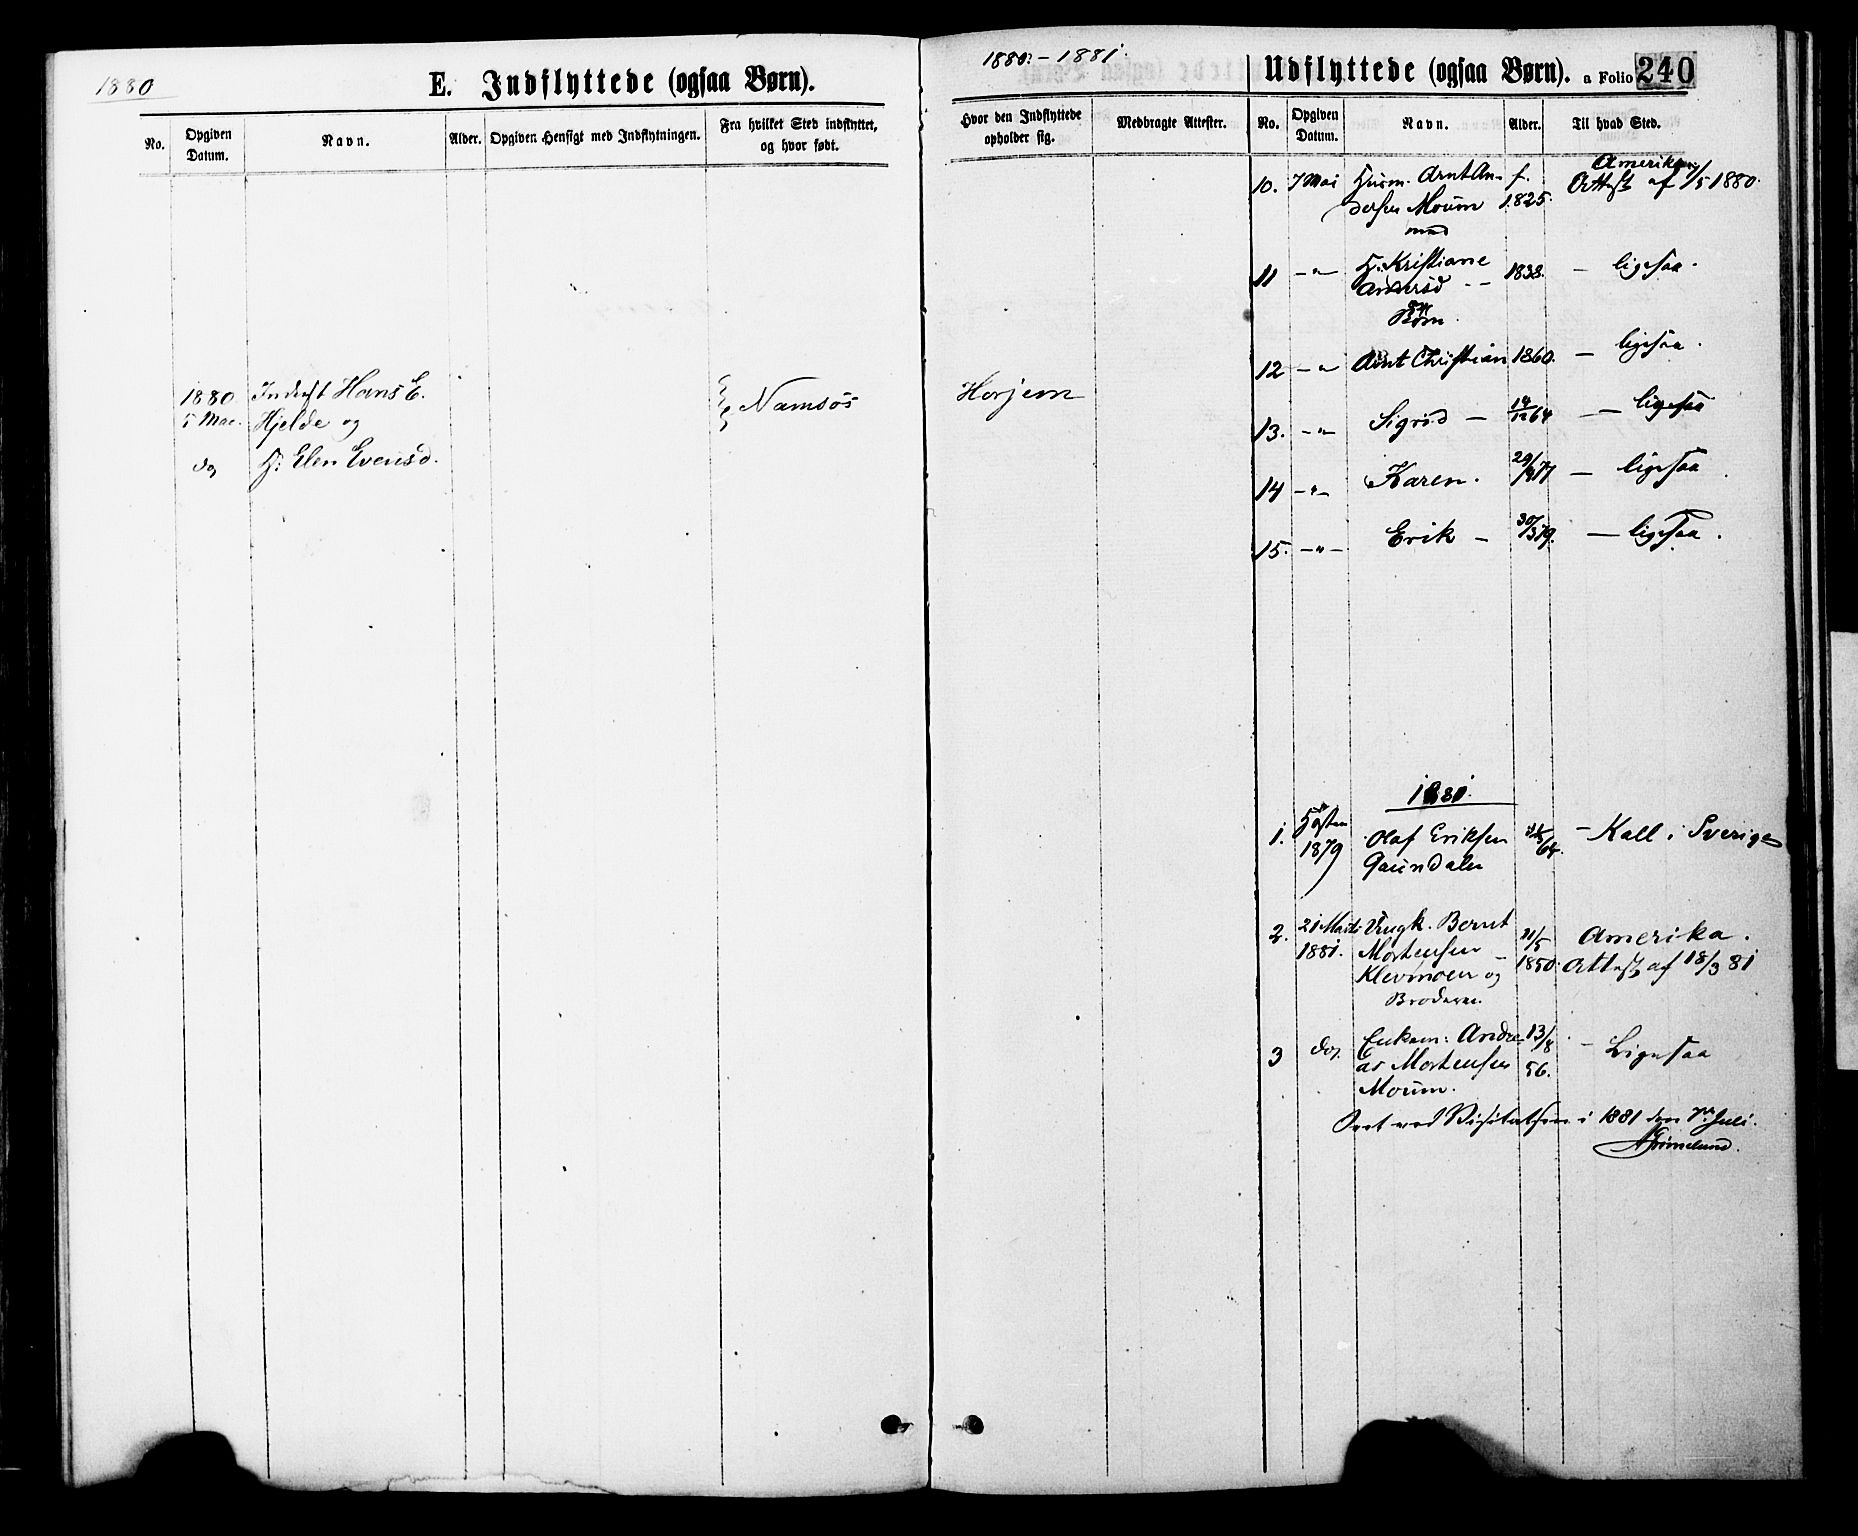 1880
E. Indflyttede (ogsaa Børn).
No.
Opgiven Datum.
Navn.
Alder.
Opgiven Hensigt med Indflytningen.
Fra hvilket Sted indflyttet, og hvor født.
1880 Hans E. Namsos
5 Mae. Hjelde og
do H: Elen Evensd.
1880 - 1881.
Udflyttede (ogsaa Børn). a Folio 240
Hvor den Indflyttede opholder sig.
Medbragte Attester.
No.
Opgiven Datum.
Navn.
Alder.
Til hvad Sted.
Horjem
Amerika
10. 7 Mai Husm. Arnt An- f. Attest af 1/5 1880.
dersen Moum 1825.
med
11 -"- H: Kristiane 1838. - ligesaa.
Andersd --
Børn.
12 -"- Arnt Christian 1860. - ligesaa.
13. -"- Sigrid - 14/12 64 - ligesaa
14 -"- Karen. 29/ 77 - ligesaa
15. -"- Erik - 30/3 79. - ligesaa.
1881.
1. Høsten Olaf Eriksen 64. - Kall i Sverige
1879 Gaundalen
2. 21 Marts Ungk. Bernt 21/5 Amerika.
1881. Mortensen 1850. Attest af 18/3 81
Klevmoen og
Broderen
3 do. Enkem: Andre- 13/8 - Ligesaa
as Mortensen 56.
Moum.
Seet ved Visitatsen i 1881 den Juli.